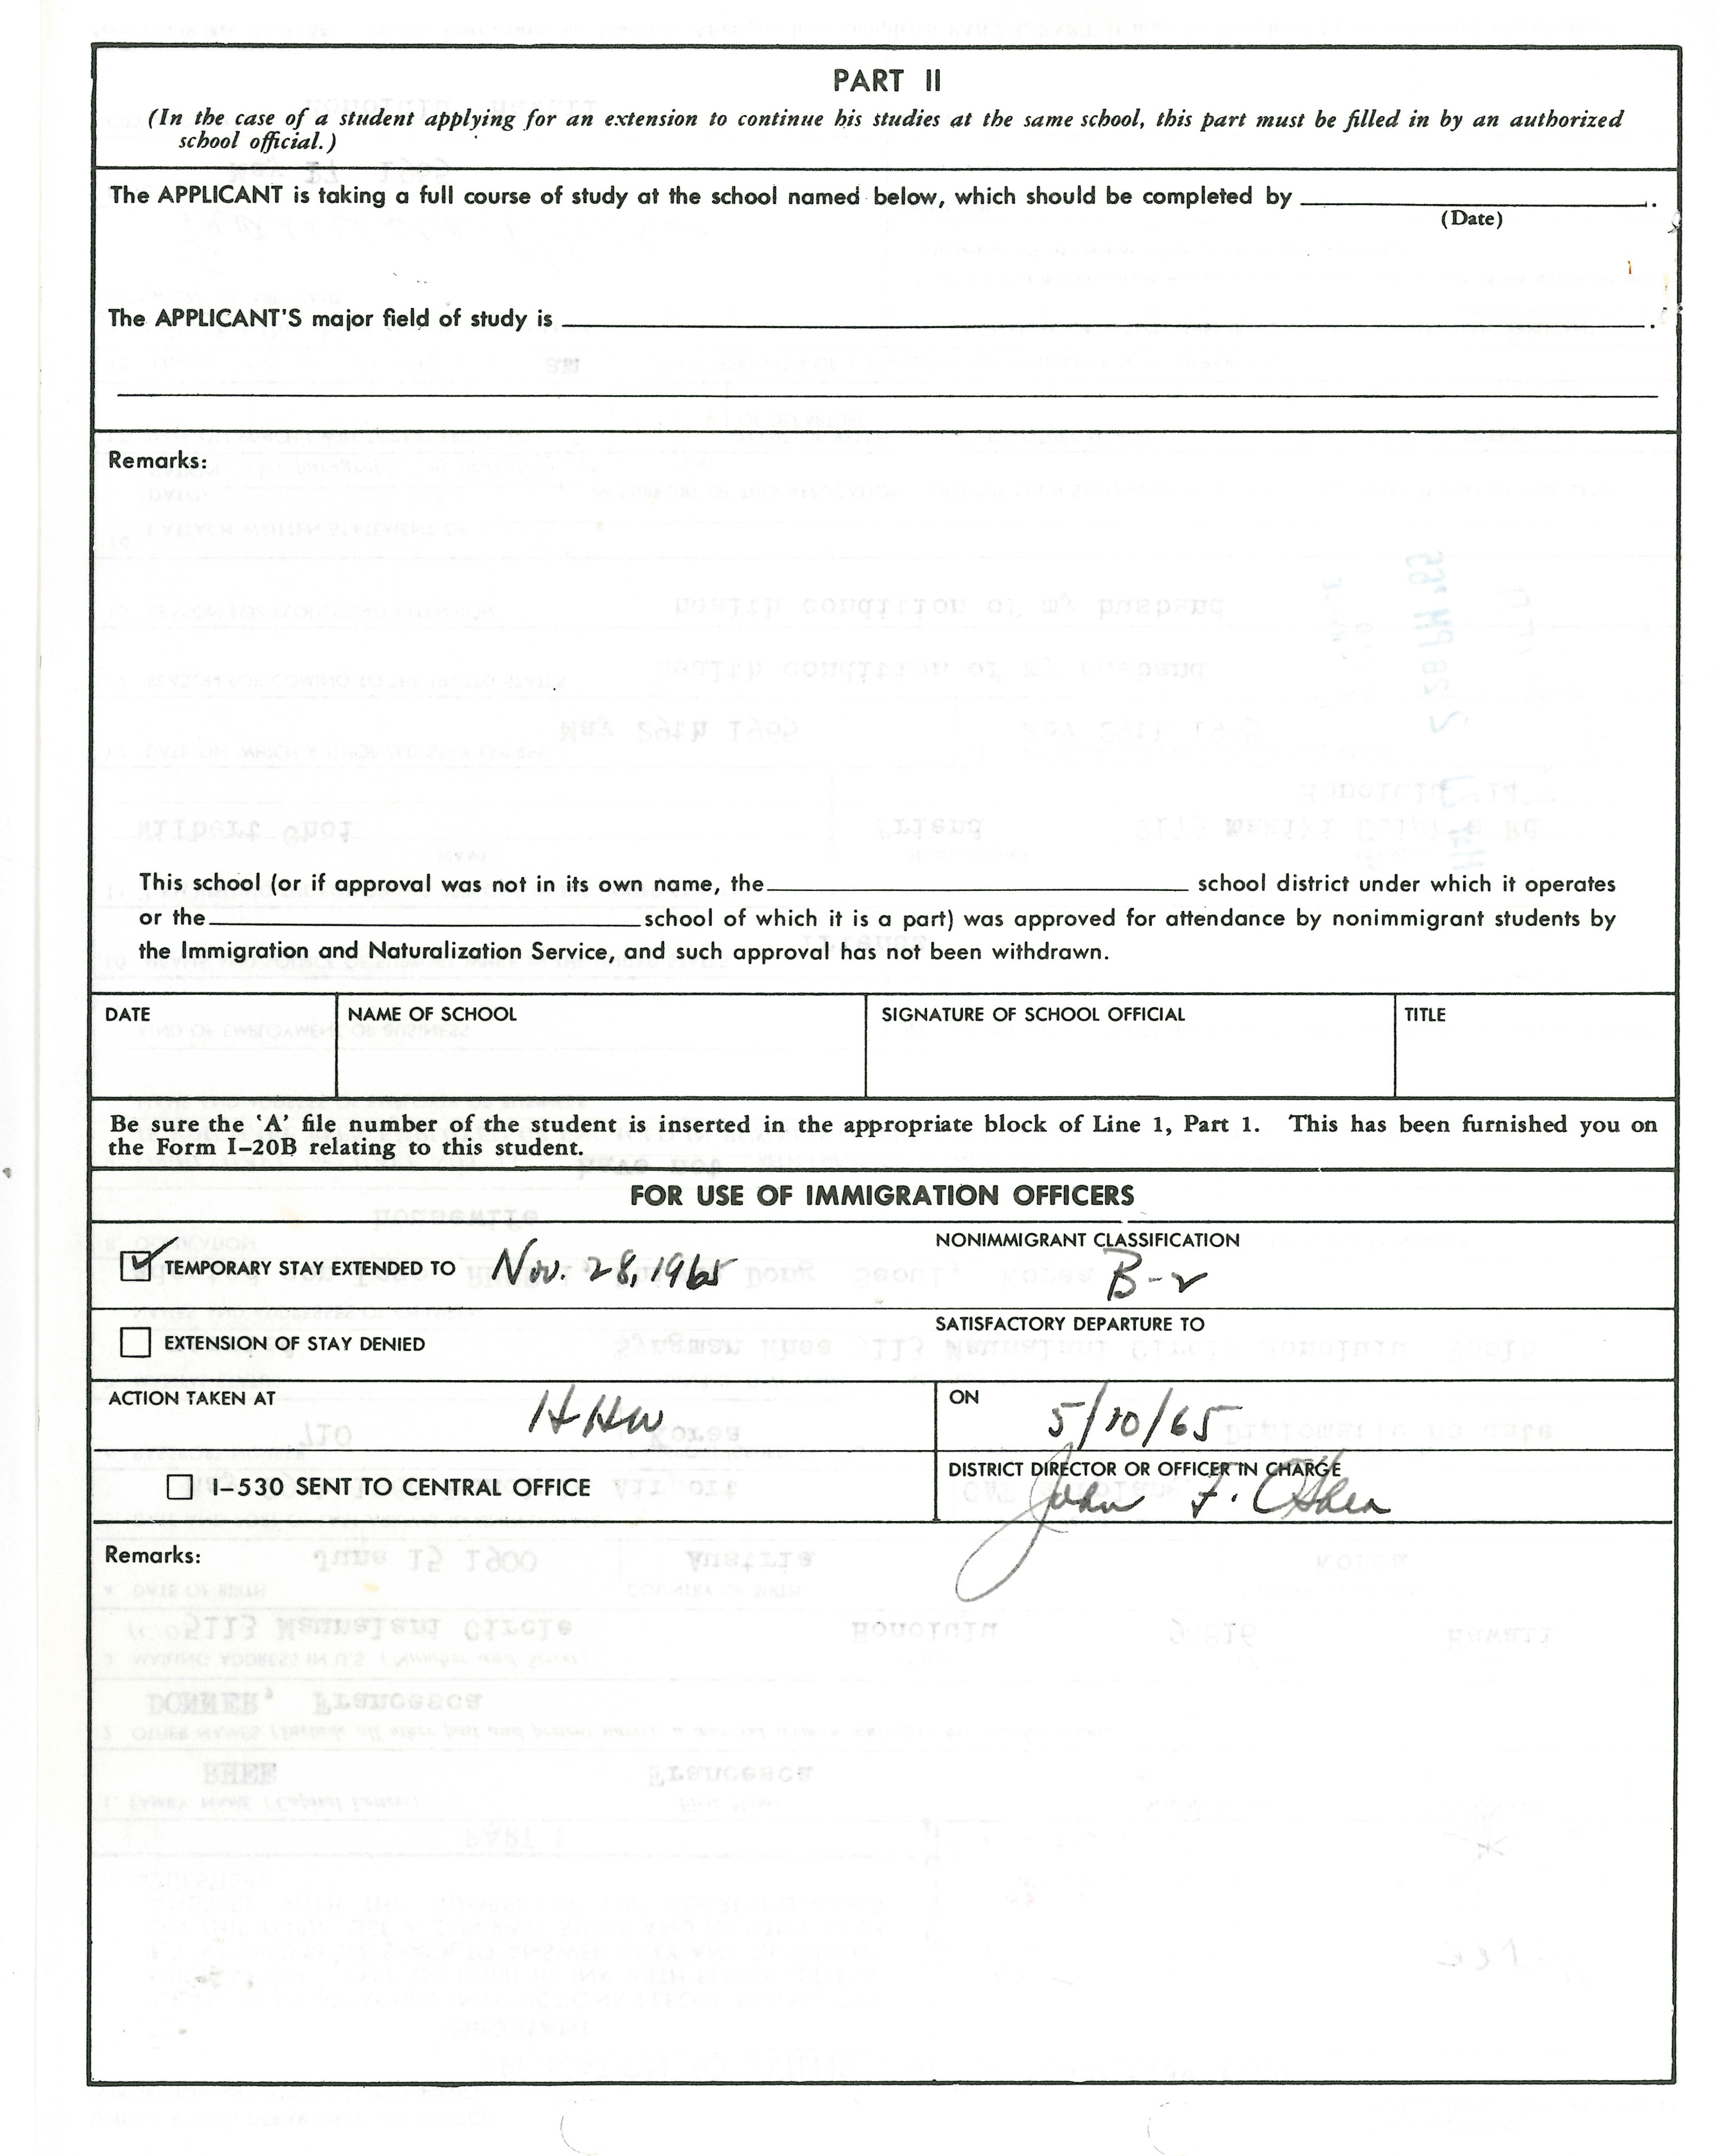 PART II
(In the case of a student applying for an extension to continue his studies at the same school, this part must be filled in by an authorized
school official.)
The APPLICANT is taking a full course of study at the school named below, which should be completed by
(Date)
The APPLICANT'S major field of study is
Remarks:
This school (or if approval was not in its own name, the school district under which it operates
or the school of which it is a part) was approved for attendance by nonimmigrant students by
the Immigration and Naturalization Service, and such approval has not been withdrawn.
DATE NAME OF SCHOOL SIGNATURE OF SCHOOL OFFICIAL TITLE
Be sure the 'A' file number of the student is inserted in the appropriate block of Line 1, Part 1. This has been furnished you on
the Form I-20B relating to this student.
FOR USE OF IMMIGRATION OFFICERS
TEMPORARY STAY EXTENDED TO Nov. 28, 1965
NONIMMIGRANT CLASSIFICATION
B-2
EXTENSION OF STAY DENIED
SATISFACTORY DEPARTURE TO
ACTION TAKEN AT HHW
ON 5/10/65
I-530 SENT TO CENTRAL OFFICE
DISTRICT DIRECTOR OR OFFICER IN CHARGE
John F. O'Shea
Remarks: